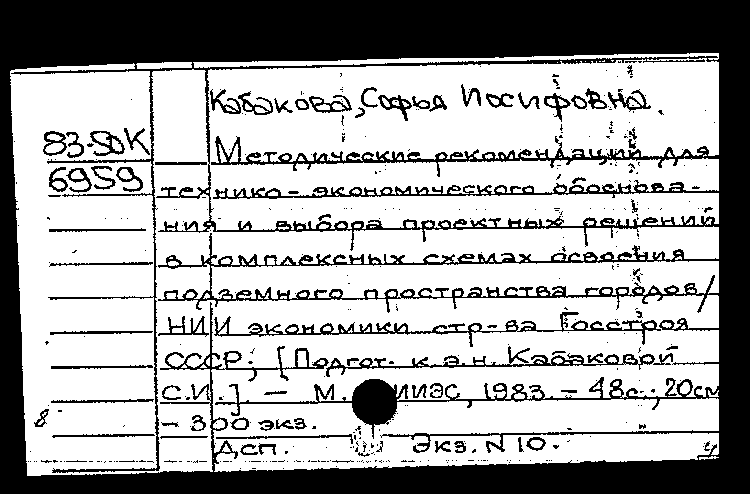 Кабакова, Софья Иосифовна.
83-50К
6959
Методические рекомендации для
технико-экономического обоснова-
ния и выбора проектных решений
в комплексных схемах освоения
подземного пространства городов/
НИИ экономики стр-ва Госстроя
СССР; [Подгот. к.э.н. Кабаковой
С.И.]. — М. НИИЭС, 1983. - 48с.; 20см
- 300 экз.
8
Дсп. Экз. N 10.
4